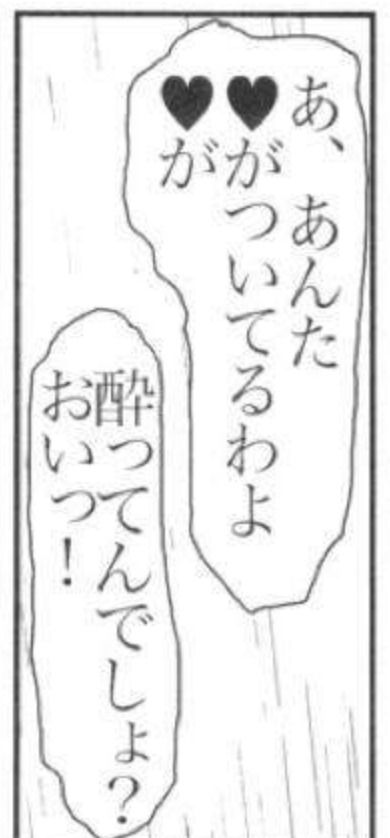 あ、あんた
♥がついてるわよ
♥が
酔ってんでしょ？
おいっ！